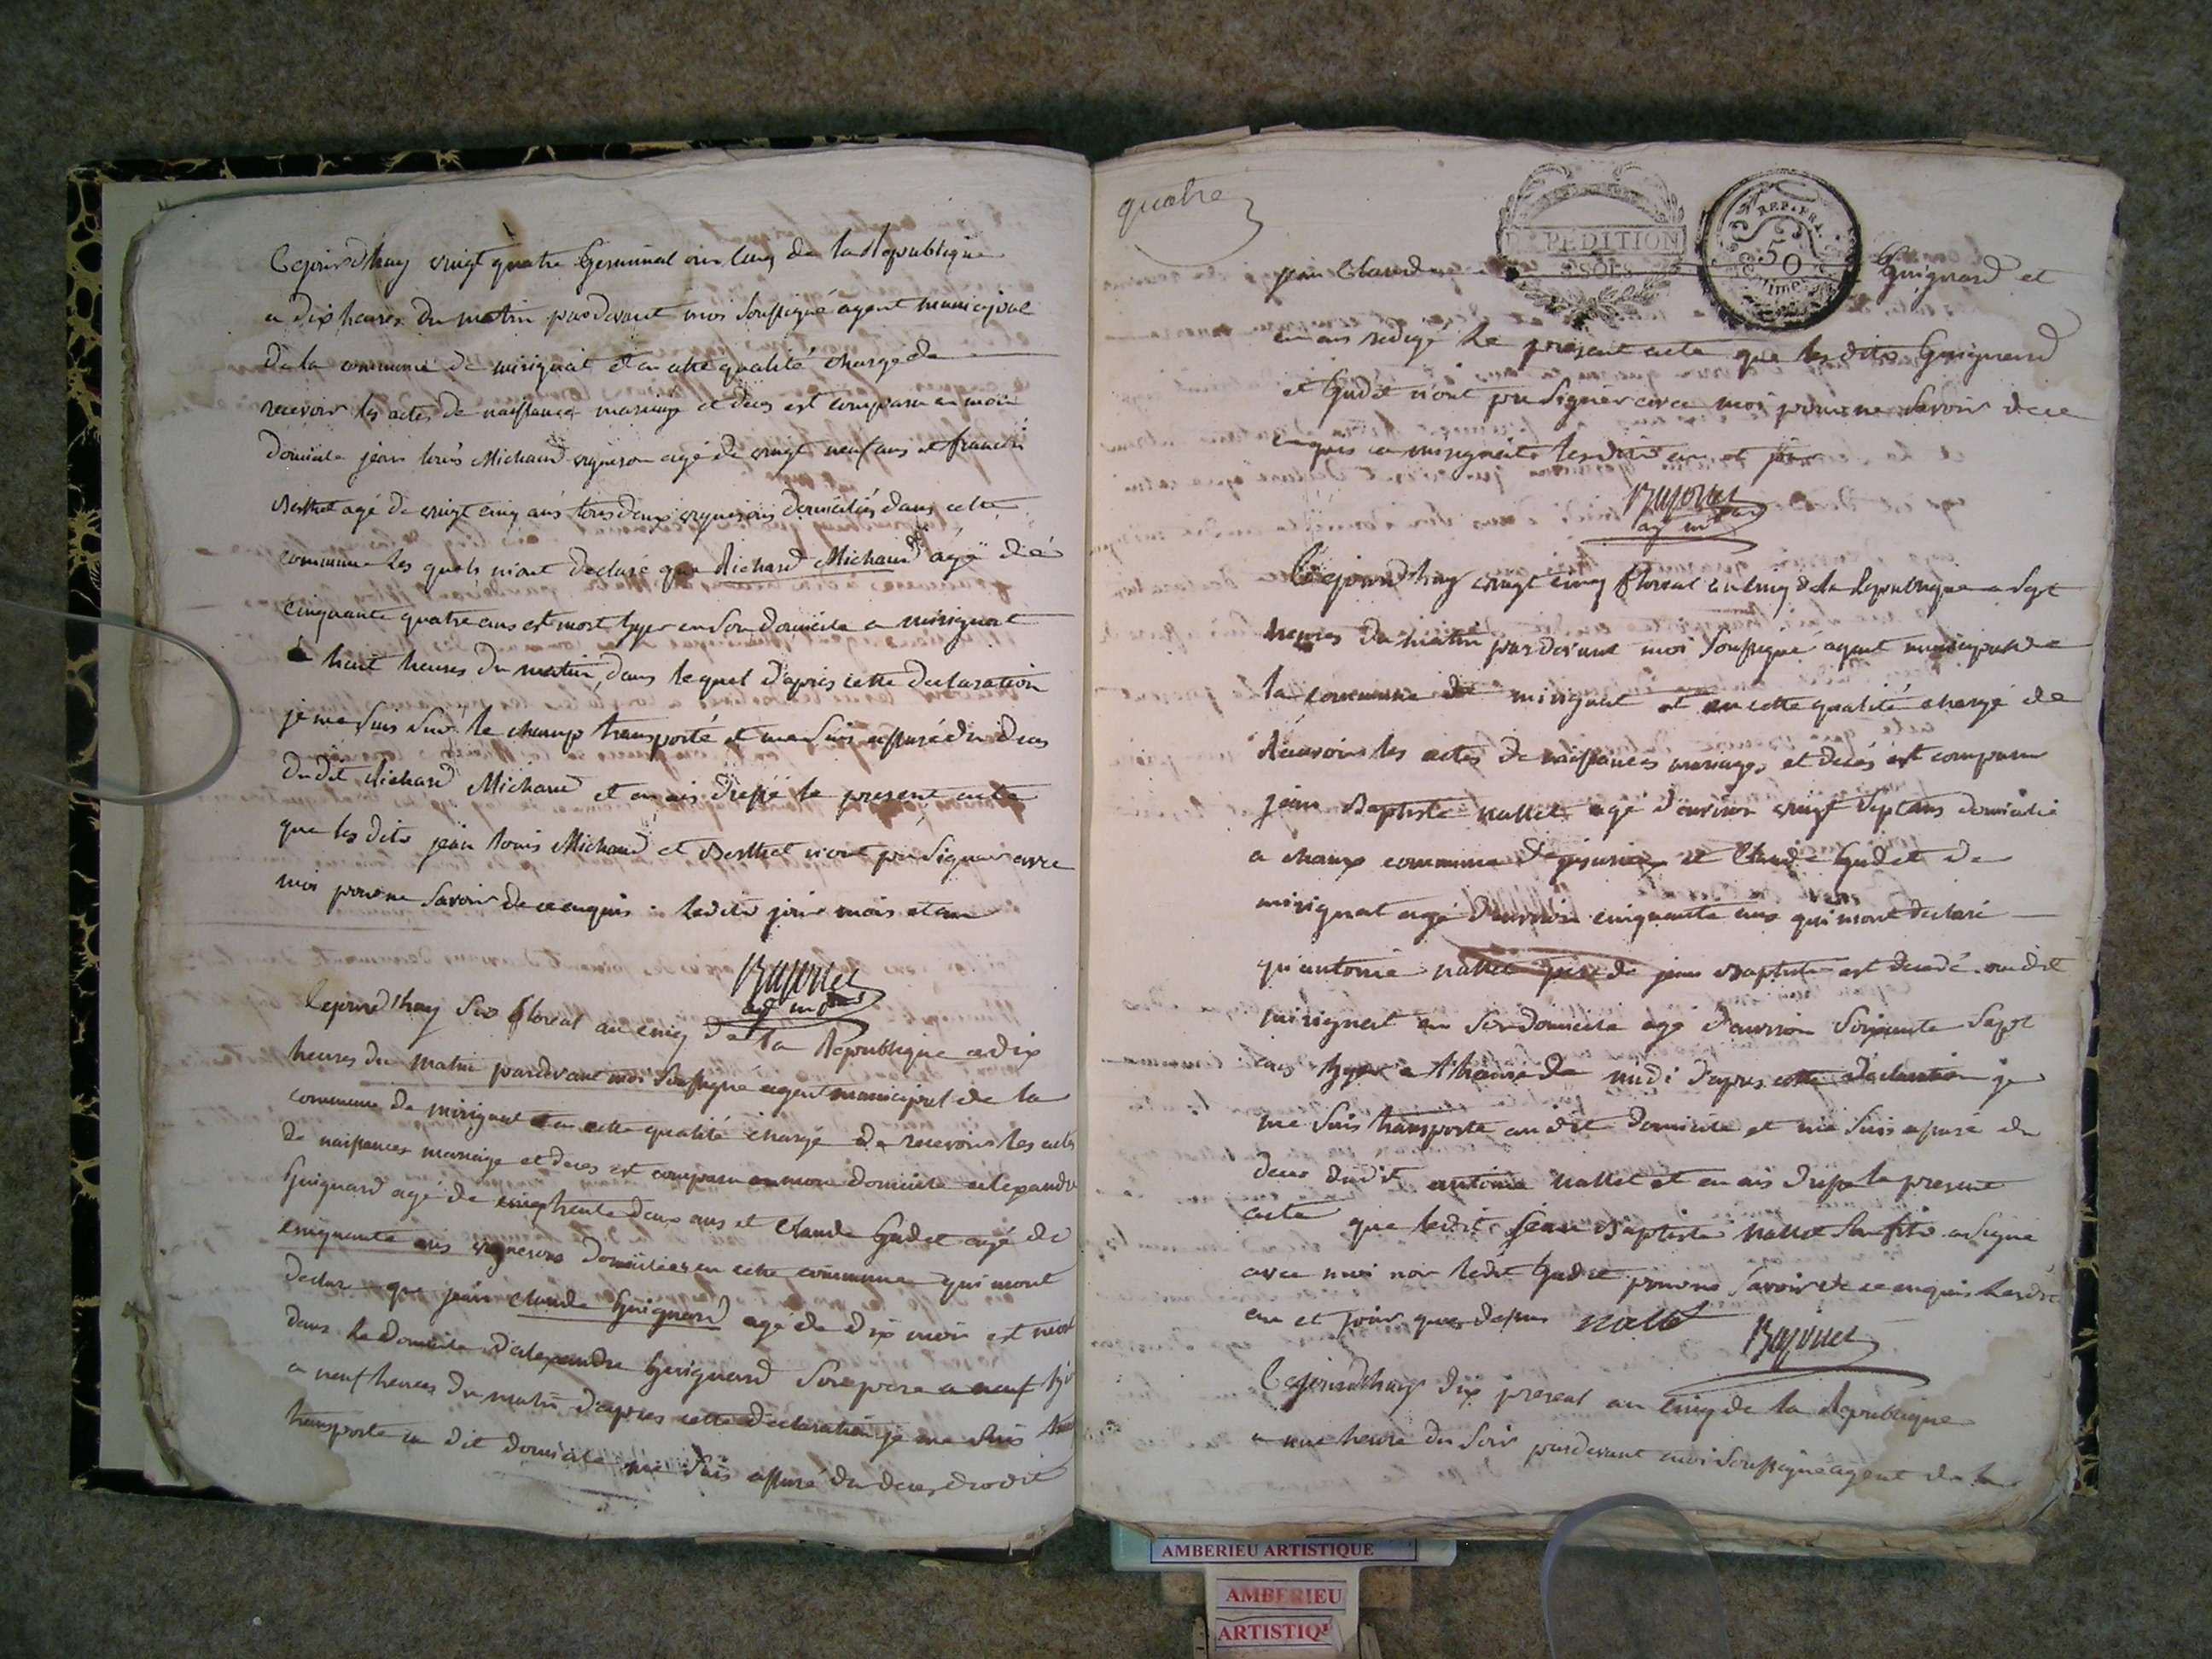 Cejourdhuy vingt quatre Germinal an cinq de la Republique
a dix heures du matin pardevant moi soussigné agent municipal
de la commune de mirignat et en cette qualité chargé de
recevoir les actes de naissance mariage et deces est comparu en mon
domicile jean louis Michaud vigneron agé de vingt neuf ans et francois
Berthet agé de vingt cinq ans tous deux vignerons domiciliés dans cette
commune les quels m'ont declaré que Richard Michaud agé de
Cinquante quatre ans est mort hyer en son domicile a mirignat
a huit heures du matin, dans lequel d'apres cette declaration
je me suis sur le champ transporté et me suis assuré du deces
dudit Richard Michaud et en ais dressé le present acte
que les dits jean louis Michaud et Berthet n'ont pu signer avec
moi pour ne savoir de ce enquis. lesdits jour mois et an
ag m
Cejourdhuy six floreal an cinq de la Republique a dix
heures du matin pardevant moi soussigné agent municipal de la
commune de mirignat et en cette qualité chargé de recevoir les actes
de naissances mariage et deces est comparu en mon domicile alexandre
Guignard agé de trente deux ans et Claude Gudet agé de
cinquante ans vignerons domiciliés en cette commune qui mont
declar que jean claude Guignard age de dix mois est mort
dans le domicile d'alexandre Guignard son pere a neuf hyer
a neuf heures du matin d'apres cette declaration je me suis
transporte au dit domicile me suis assuré du deces dudit
quatre
EXPEDITION
SOLS
REP. FRA.
50
jean Claude Guignard et
en ais redigé le present acte que les dits Guignard
et Gudet n'ont pu signer avec moi pour ne savoir de ce
enquis a mirignat lesdits an et jour
ag m
Cejourdhuy vingt cinq floreal an cinq de la Republique a sept
heures du matin pardevant moi soussigné agent municipal de
la commune de mirignat et en cette qualité chargé de
recevoir les actes de naissances mariages et decés est comparu
jean Baptiste nallet agé d'environ vingt sept ans domicilié
a chaux commune de et Claude Gudet de
mirignat agé d'environ cinquante ans qui mont declaré
qu'antoine nallet pere de jean Baptiste est decedé audit
mirignat en son domicile agé d'environ soixante sept
ans hyer a l'heure de midi d'apres cette declaration je
me suis transporté audit domicile et me suis assuré du
deces dudit antoine nallet et en ais dressé le present
acte que ledit Jean Baptiste nallet son fils a signé
avec moi non ledit Gudet pour ne savoir de ce enquis lesdit
an et jour que dessus nallet
Cejourdhuy dix prereal an cinq de la Republique
a une heure du soir pardevant moi soussigné agent de la
AMBERIEU ARTISTIQUE
AMBERIEU
ARTISTIQ